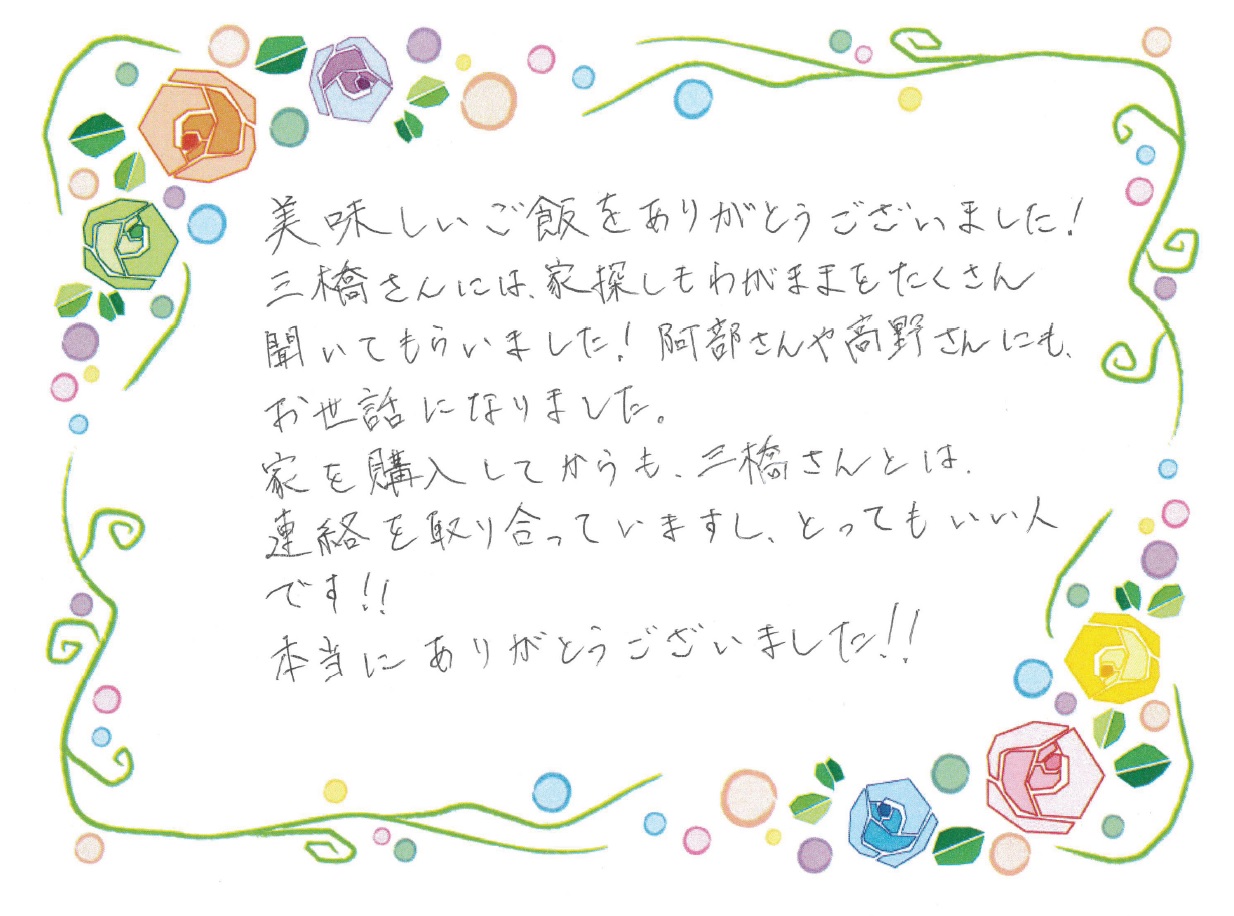 美味しいご飯をありがとうございました!
三橋さんには、家探しもわがままをたくさん
聞いてもらいました! 阿部さんや高野さんにも、
お世話になりました。
家を購入してからも、三橋さんとは、
連絡を取り合っていますし、とってもいい人
です!!
本当にありがとうございました!!